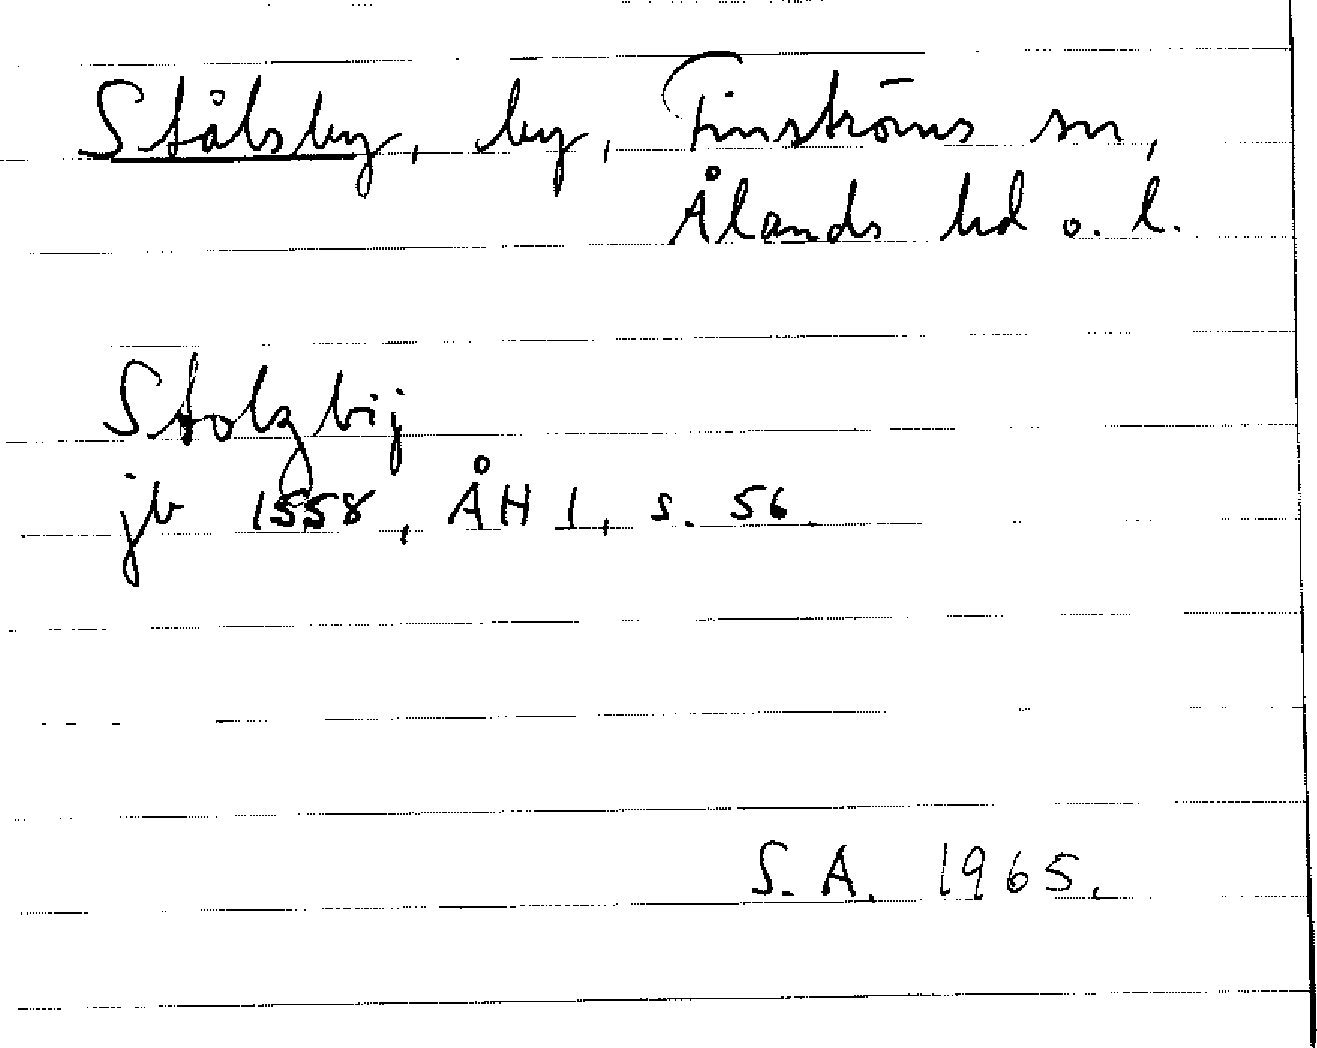 Stålsby, by, Finströms sn,
Ålands hd o. l.
Stolzbij
jb 1558, ÅH 1, s. 56
S. A. 1965.